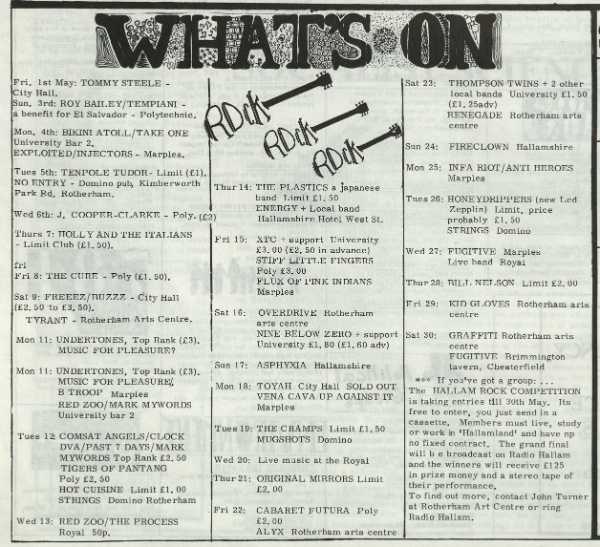 WHAT'S ON
Fri, 1st May: TOMMY STEELE -
City Hall.
Sun, 3rd: ROY BAILEY/TEMPIANI -
a benefit for El Salvador - Polytechnic.
Mon, 4th: BIKINI ATOLL/TAKE ONE
University Bar 2.
EXPLOITED/INJECTORS - Marples.
Tues 5th: TENPOLE TUDOR- Limit (£1).
NO ENTRY - Domino pub, Kimberworth
Park Rd, Rotherham.
Wed 6th: J. COOPER-CLARKE - Poly. (£2)
Thurs 7: HOLLY AND THE ITALIANS
- Limit Club (£1.50).
fri
Fri 8: THE CURE - Poly (£1.50).
Sat 9: FREEEZ/BUZZZ - City Hall
(£2.50 to £3.50).
TYRANT - Rotherham Arts Centre.
Mon 11: UNDERTONES, Top Rank (£3).
MUSIC FOR PLEASURE?
Mon 11: UNDERTONES, Top Rank (£3).
MUSIC FOR PLEASURE/
B TROOP Marples
RED ZOO/MARK MYWORDS
University bar 2
Tues 12: COMSAT ANGELS/CLOCK
DVA/PAST 7 DAYS/MARK
MYWORDS Top Rank £2.50
TIGERS OF PANTANG
Poly £2.50
HOT CUISINE Limit £1.00
STRINGS Domino Rotherham
Wed 13: RED ZOO/THE PROCESS
Royal 50p.
ROCK
ROCK
ROCK
Thur 14: THE PLASTICS a japanese
band Limit £1.50
ENERGY + Local band
Hallamshire Hotel West St.
Fri 15: XTC + support University
£3.00 (£2.50 in advance)
STIFF LITTLE FINGERS
Poly £3.00
FLUX OF PINK INDIANS
Marples
Sat 16: OVERDRIVE Rotherham
arts centre
NINE BELOW ZERO + support
University £1.80 (£1.60 adv)
Sun 17: ASPHYXIA Hallamshire
Mon 18: TOYAH City Hall SOLD OUT
VENA CAVA UP AGAINST IT
Marples
Tues 19: THE CRAMPS Limit £1.50
MUGSHOTS Domino
Wed 20: Live music at the Royal
Thur 21: ORIGINAL MIRRORS Limit
£2.00
Fri 22: CABARET FUTURA Poly
£2.00
ALYX Rotherham arts centre
Sat 23: THOMPSON TWINS + 2 other
local bands University £1.50
(£1.25adv)
RENEGADE Rotherham arts
centre
Sun 24: FIRECLOWN Hallamshire
Mon 25: INFA RIOT/ANTI HEROES
Marples
Tues 26: HONEYDRIPPERS (new Led
Zepplin) Limit, price
probably £1.50
STRINGS Domino
Wed 27: FUGITIVE Marples
Live band Royal
Thur 28: BILL NELSON Limit £2.00
Fri 29: KID GLOVES Rotherham arts
centre
Sat 30: GRAFFITI Rotherham arts
centre
FUGITIVE Brimmington
tavern, Chesterfield
*** If you've got a group: ...
The HALLAM ROCK COMPETITION
is taking entries till 30th May. Its
free to enter, you just send in a
cassette. Members must live, study
or work in 'Hallamland' and have np
no fixed contract. The grand final
will b e broadcast on Radio Hallam
and the winners will receive £125
in prize money and a stereo tape of
their performance.
To find out more, contact John Turner
at Rotherham Art Centre or ring
Radio Hallam.